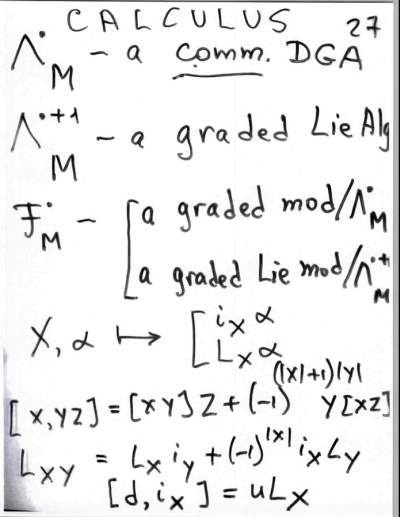 CALCULUS 27
Λ^•_M - a comm. DGA
Λ^{•+1}_M - a graded Lie Alg
F^•_M - [a graded mod/Λ^•_M
a graded Lie mod/Λ^{•+}_M
X, α ↦ [i_X α
L_X α
[x,yz]=[xy]z+(-1)^{(|x|+1)|y|} y[xz]
L_{XY} = L_X i_Y +(-1)^{|X|} i_X L_Y
[d, i_X] = uL_X